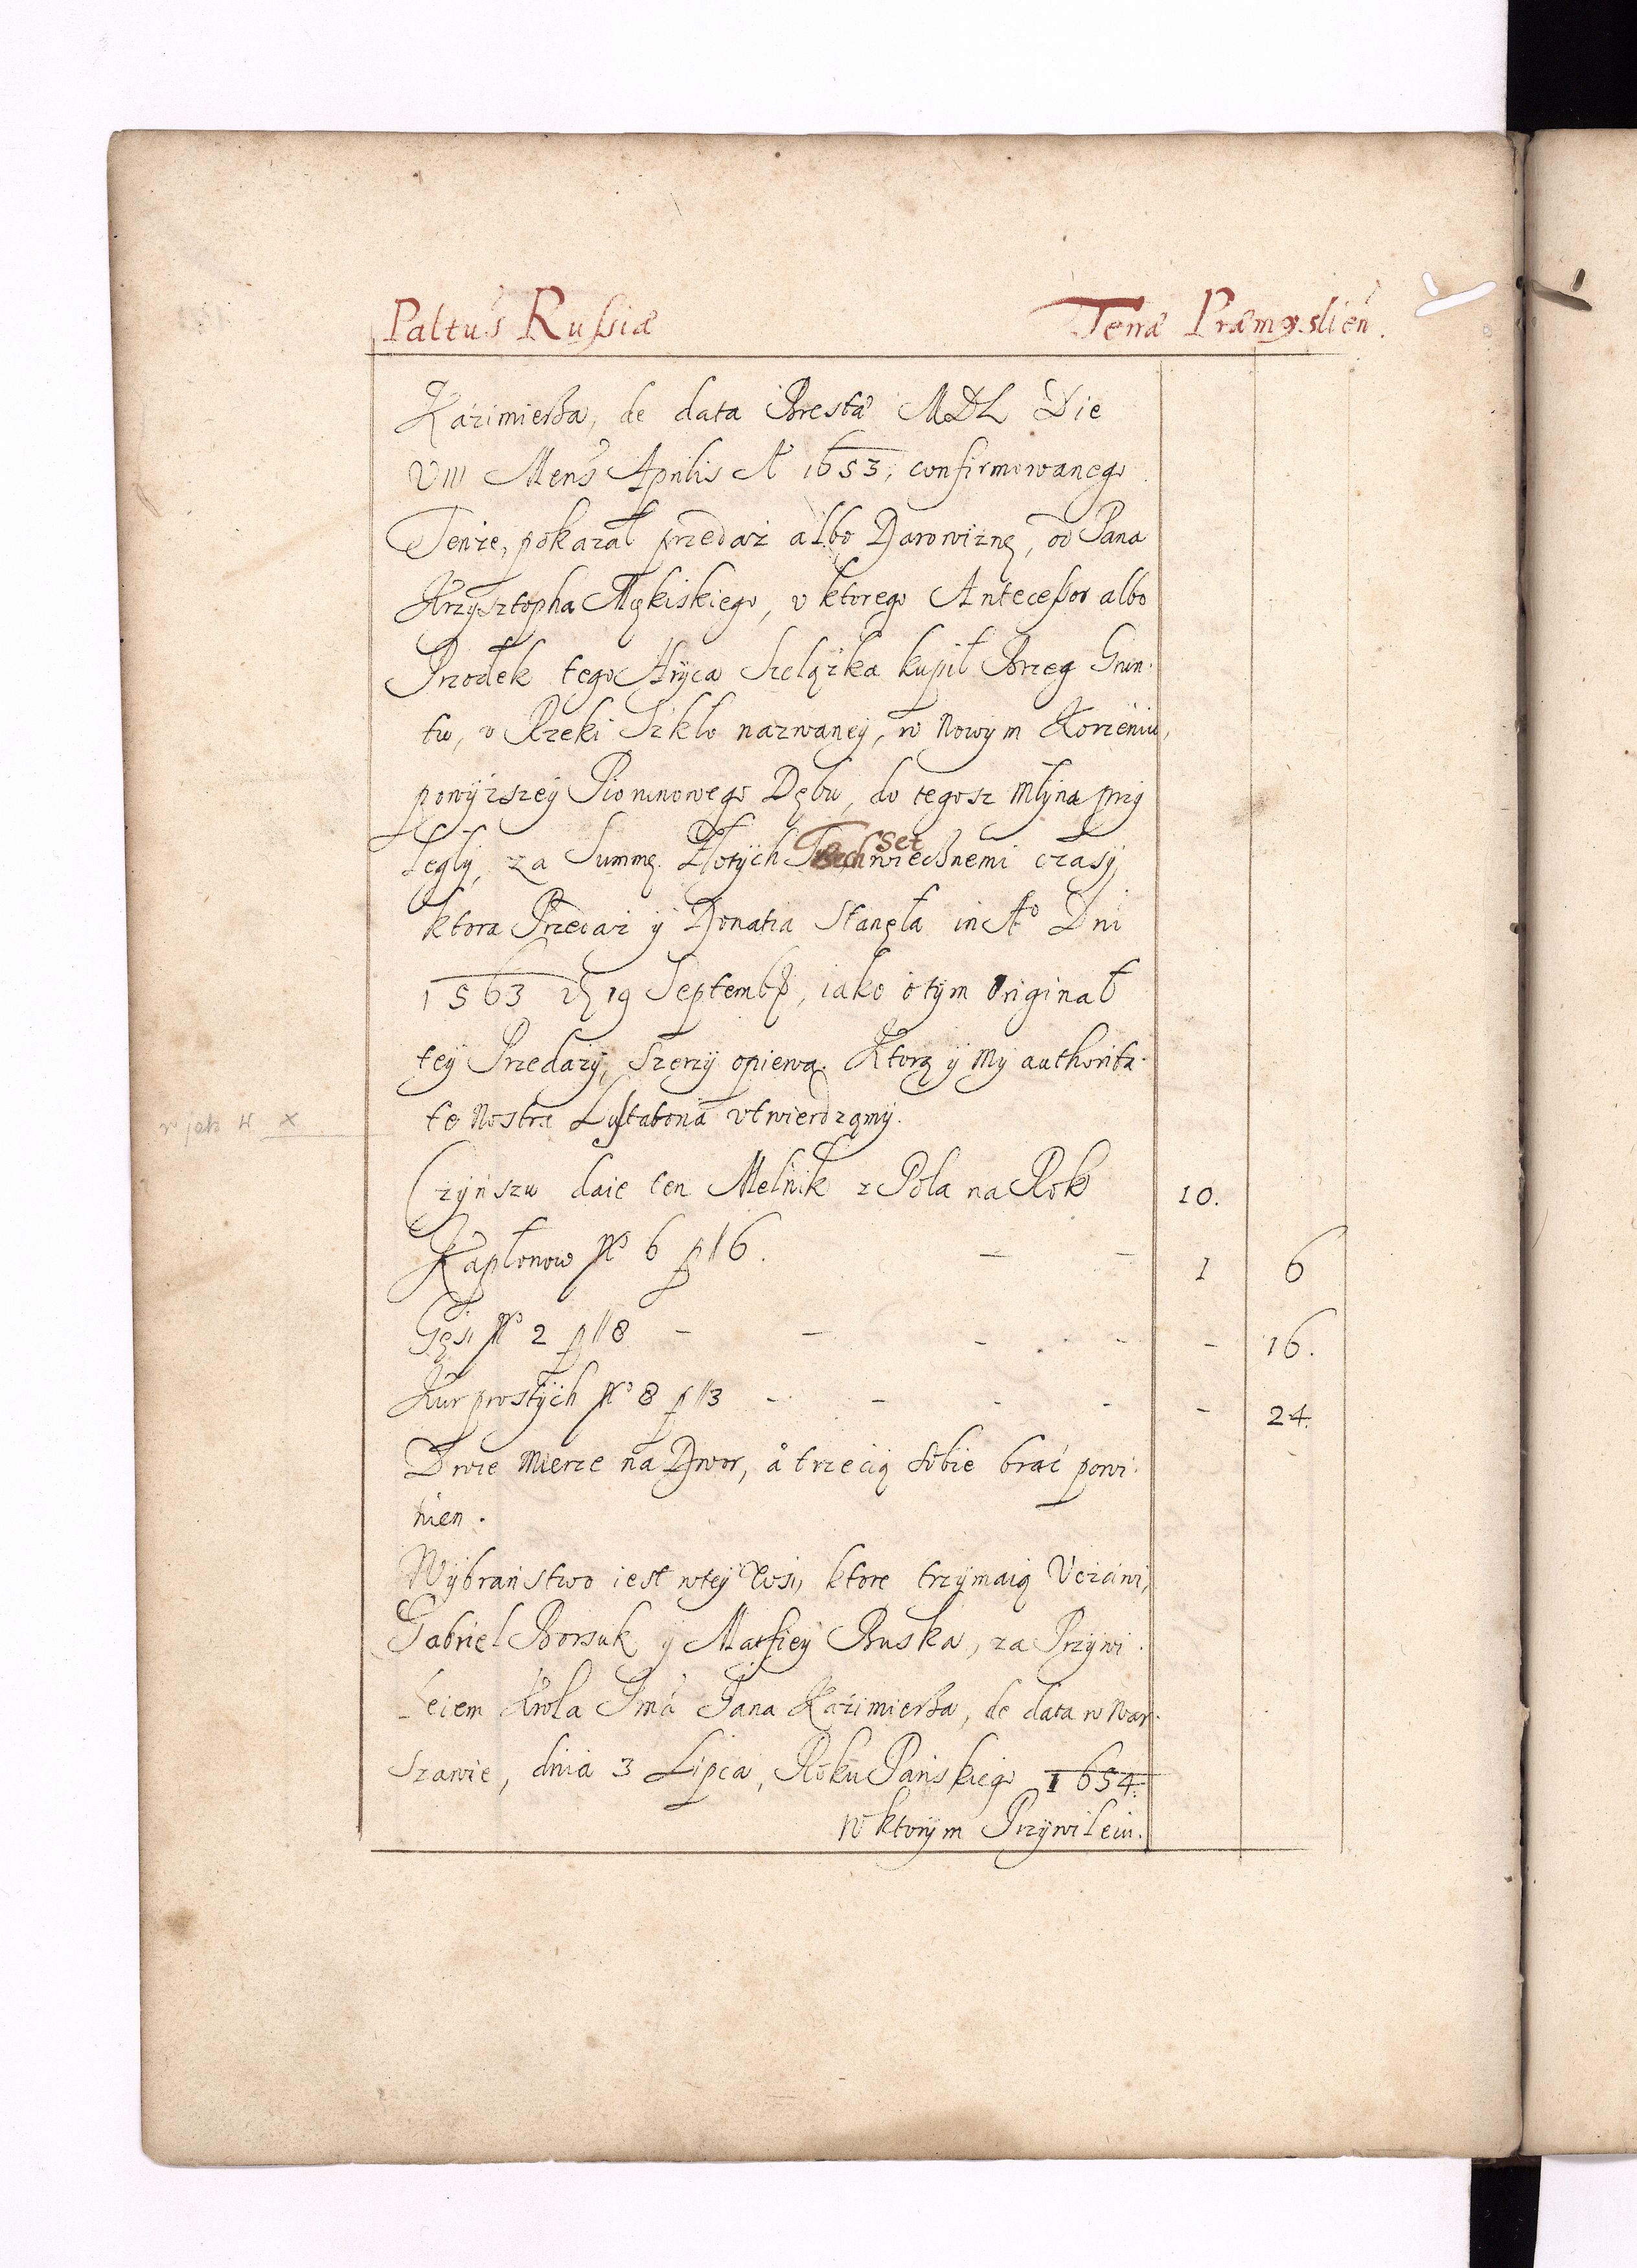 Paltus Russiæ Terræ Præmysliens.
Kazimierza, de data Brestæ MDL Die
VIII Mens Aprilis A 1653, confirmowanego
Tenze, pokazał przedaż albo Darowiznę, od Pana
Krzysztopha Mękiskiego, v ktorego Antecessor albo
Przodek tego Hryca Szelążka kupił Brzeg Grun-
tu, v Rzeki Szkło nazwaney, w Nowym Korzeniu,
powyższey Piorunowego Dębu, do tegosz Młyna przy
legły, za Summę Złotych Trzechset wiecznemi czasy
ktora Przedaż y Donatia Stanęła in Ao Dni
1563 19 Septembr, iako o tym Originał
tey Przedaży, szerzy opiewa. Ktorą y My authorita-
te Nostra Lustatoria vtwierdzamy.
Czynszu daie ten Melnik z Pola na Rok 10.
Kapłonow No 6 p // 6. — — 1 6
Gęsi No 2 p // 8 - - - - - 16.
Kur prostych No 8 p // 3 - - - - - 24.
Dwie Mierze na Dwor, á trzecią sobie brać powi-
nien.
Wybraństwo iest wtey Wsi, ktore trzymaią Vczciwi,
Gabriel Borsuk y Matfiey Buska, za Przywi-
leiem Krola Jmci Jana Kazimierza, de data w War-
szawie, dnia 3 Lipca, Roku Pańskiego 1654.
w ktorym Przywileiu.